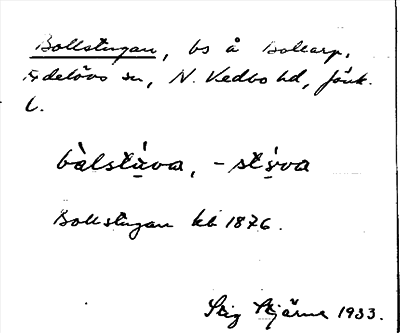 Bollstugan, bs å Bollarp,
Bredestads sn, N. Vedbo hd, Jönk.
L.
bòlstùva, -stúva
Bollstugan kb 1876.
Stig Stjärna 1933.